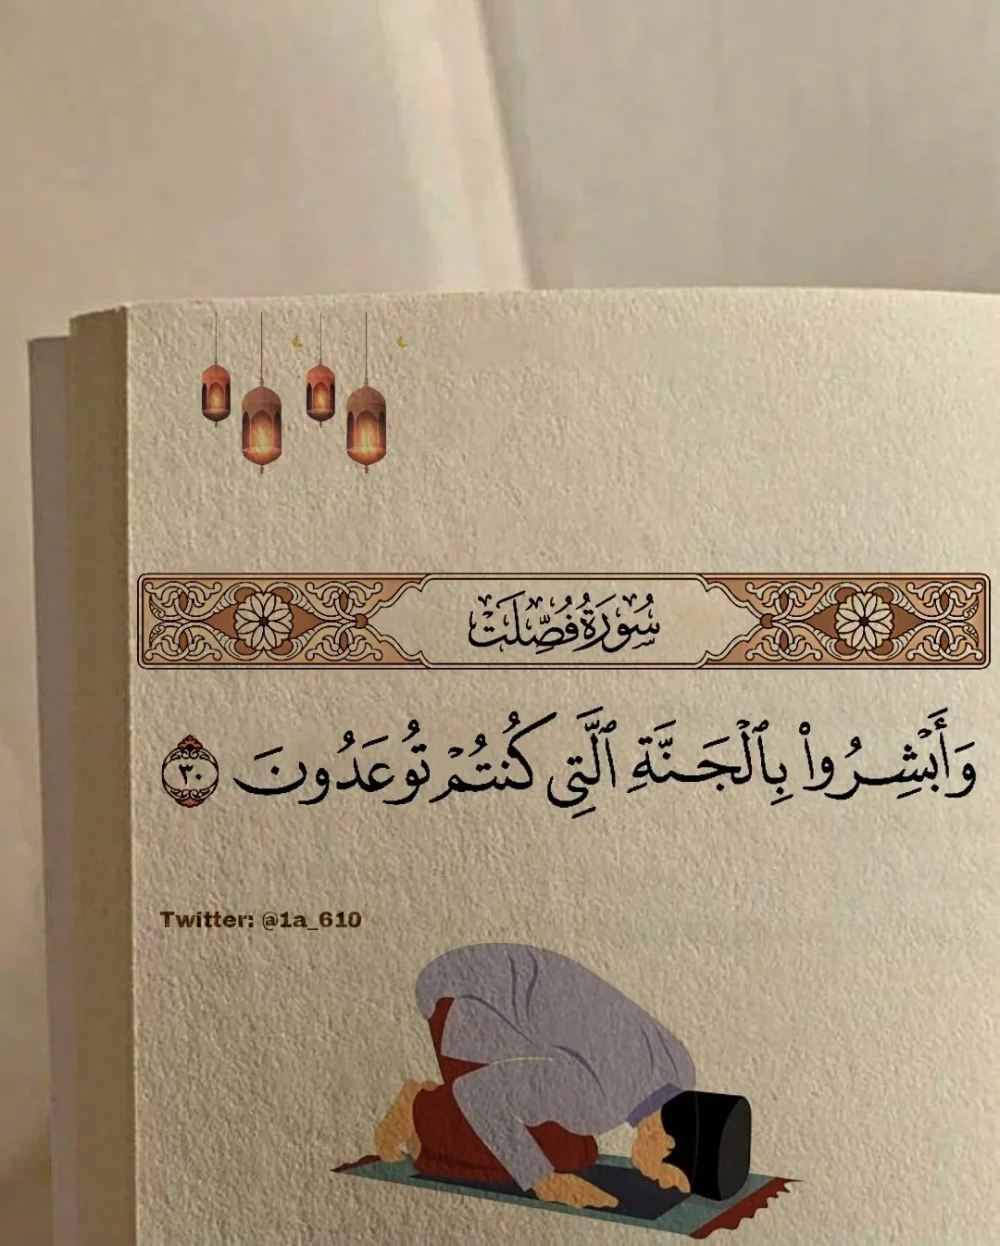 سُورَةُ فُصِّلَتْ
وَأَبْشِرُوا۟ بِٱلْجَنَّةِ ٱلَّتِى كُنتُمْ تُوعَدُونَ ٣٠
Twitter: @1a_610